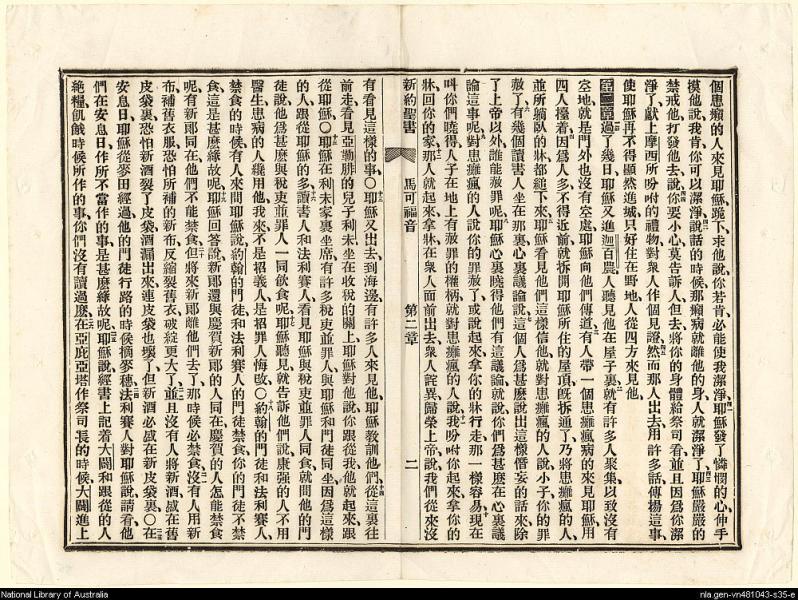 個患癩的人來見耶穌、跪下求他說、你若肯、必能使我潔淨、耶穌發了憐憫的心、伸手
摸他、說我肯、你可以潔淨、說話的時候、那癩病就離他的身、人就潔淨了、耶穌嚴嚴的
禁戒他、打發他去、說你要小心、莫告訴人、但去將你的身體給祭司看、並且因為你潔
淨了、獻上摩西所吩咐的禮物、對衆人作個見證、然而那人出去、用許多話傳揚這事、
使耶穌再不得顯然進城、只好住在野地、人從四方來見他、
第二章 過了幾日、耶穌又進迦百農、人聽見他在屋子裏、就有許多人聚集、以致沒有
空地、就是門外也沒有空處、耶穌向他們傳道、有人帶一個患癱瘋病的來見耶穌、用
四人擡着、因為人多、不得近前、就拆開耶穌所住的屋頂、旣拆通了、乃將患癱瘋的人、
並所躺臥的牀、都縋下來、耶穌看見他們這樣信他、就對患癱瘋的人說、小子、你的罪
赦了、有幾個讀書人坐在那裏、心裏議論說、這個人為甚麼說出這樣僭妄的話來、除
了上帝以外、誰能赦罪呢、耶穌心裏曉得他們有這議論、就說、你們為甚麼在心裏議
論這事呢、對患癱瘋的人說、你的罪赦了、或說起來拿你的牀行走、那一樣容易、現在
叫你們曉得人子在地上有赦罪的權柄、就對患癱瘋的人說、我吩咐你起來、拿你的
牀回你的家、那人就起來、拿牀在衆人面前出去、衆人詫異、歸榮上帝、說我們從來沒
新約聖書 馬可福音 第二章 二
有看見這樣的事、○耶穌又出去到海邊、有許多人來見他、耶穌教訓他們、從這裏往
前走、看見亞勒腓的兒子利未、坐在收稅的關上、耶穌對他說、你跟從我、他就起來、跟
從耶穌、○耶穌在利未家裏坐席、有許多稅吏並罪人、與耶穌和門徒同坐、因為這樣
的人、跟從耶穌的多、讀書人和法利賽人、看見耶穌與稅吏並罪人同食、就問他的門
徒說、他為甚麼與稅吏並罪人一同飲食呢、耶穌聽見、就告訴他們說、康强的人不用
醫生、患病的人纔用他、我來不是招義人、是招罪人悔改、○約翰的門徒和法利賽人、
禁食的時候、有人來問耶穌說、約翰的門徒和法利賽人的門徒禁食、你的門徒不禁
食、這是甚麼緣故呢、耶穌回答說、新郞還與慶賀新郞的人同在、慶賀的人怎能禁食
呢、有新郞同在、他們不能禁食、但將來新郞離他們去了、那時候必禁食、沒有人用新
布補舊衣服、恐怕所補的新布、反縐裂舊衣、破綻更大了、並且沒有人將新酒盛在舊
皮袋裏、恐怕新酒裂了皮袋、酒漏出來、連皮袋也壞了、但新酒必盛在新皮袋裏、○在
安息日、耶穌從麥田經過、他的門徒行路的時候、摘麥穗、法利賽人對耶穌說、請看他
們在安息日作所不當作的事、是甚麼緣故呢、耶穌說、經書上記着大闢和跟從的人
絶糧飢餓時候所作的事、你們沒有讀過麼、在亞庇亞塔作祭司長的時候、大闢進上
National Library of Australia
nla.gen-vn481043-s35-e